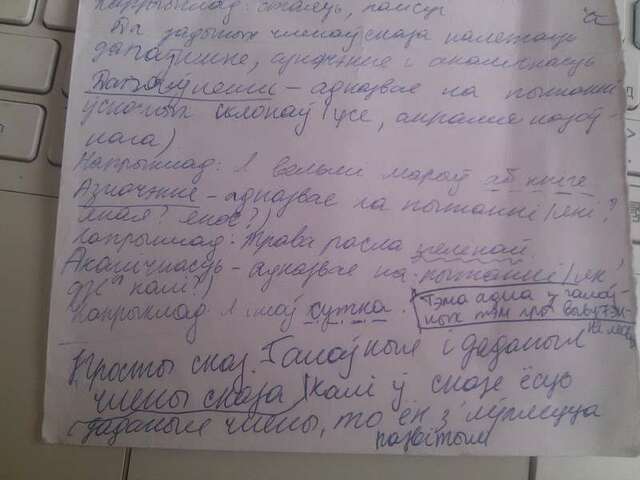 Напрыклад: стаяць,
Да даданых членаў сказа належаць
дапаўненне, азначэнне і акалічнасць
Дапаўненні – адказвае на пытанні
ўскосных склонаў (усе, акрамя назоў-
нага)
Напрыклад: Я вельмі марыў аб кнізе
Азначэнне – адказвае на пытанні (які?
якая? якое?)
Напрыклад: Трава расла зеленай.
Акалічнасць – адказвае на пытанні (як?
дзе? калі?)
Напрыклад: Я ішоў хутка.
Тэма адна у галоў-
ных тэм пры вывучэн-
Просты сказ. Галоўныя і даданыя
члены сказа (калі ў сказе ёсць
даданыя члены, то ён з'яўляецца
развітым